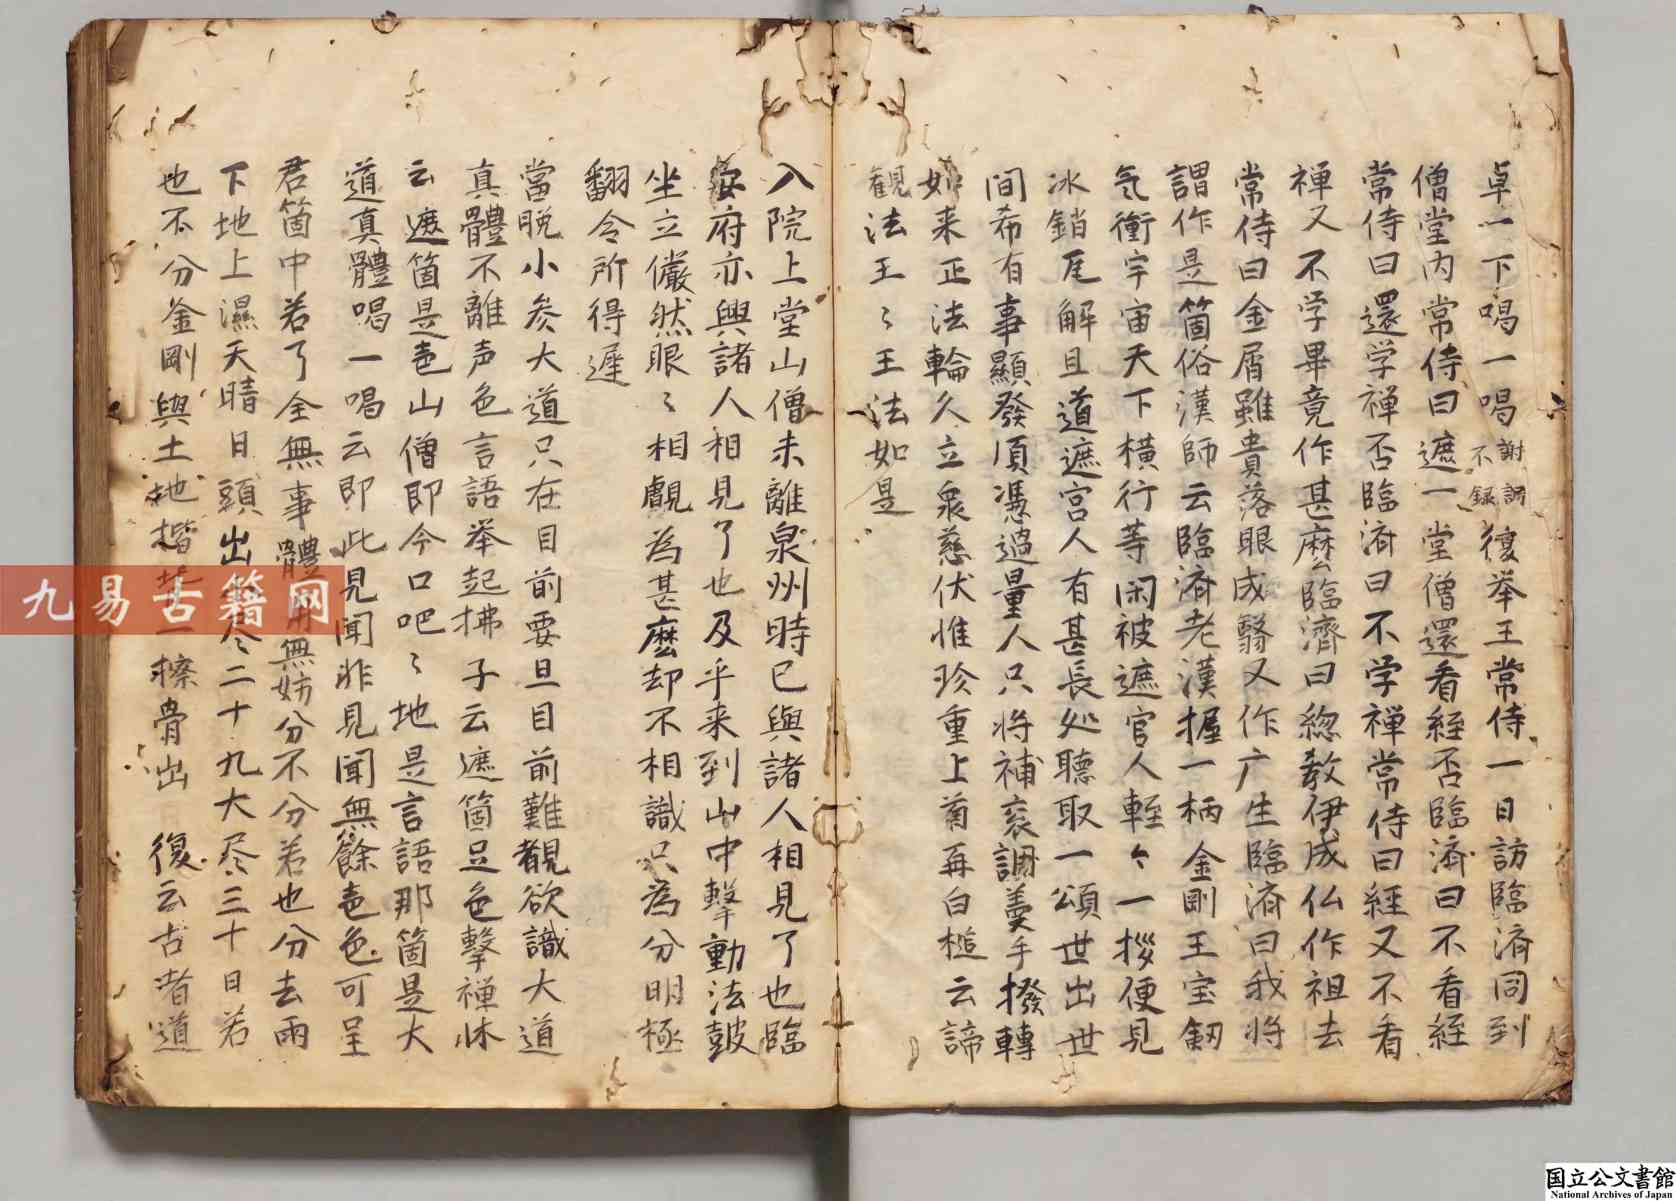 卓一下喝一喝謝詞不録復举王常侍一日訪臨済同到
僧堂内常侍曰遮一堂僧還看経否臨済曰不看経
常侍曰還学禅否臨済曰不学禅常侍曰経又不看
禅又不学畢竟作甚麽臨濟曰総教伊成仏作祖去
常侍曰金屑雖貴落眼成翳又作广生臨済曰我将
謂作是箇俗漢師云臨済老漢握一柄金剛王宝釼
気衝宇宙天下横行等閑被遮官人軽々一拶便見
冰銷瓦解且道遮官人有甚長処聴取一頌世出世
間希有事顯發須憑過量人只将補衮調羹手撥轉
如来正法輪久立衆慈伏惟珍重上首再白槌云諦
観法王〻王法如是
入院上堂山僧未離泉州時已與諸人相見了也臨
安府亦與諸人相見了也及乎来到山中擊動法鼓
坐立儼然眼〻相覷為甚麽却不相識只為分明極
翻令所得遲
當晩小参大道只在目前要且目前難覩欲識大道
真體不離声色言語举起拂子云遮箇是色擊禅牀
云遮箇是声山僧即今口吧〻地是言語那箇是大
道真體喝一喝云即此見聞非見聞無餘声色可呈
君箇中若了全無事體用無妨分不分若也分去雨
下地上濕天晴日頭出二十九大尽三十日若
也不分金剛與土地揩一擦骨出 復云古者道
九易古籍网
国立公文書館
National Archives of Japan